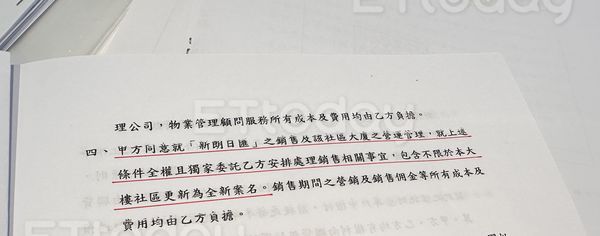 ETtoday
理公司，物業管理顧問服務所有成本及費用均由乙方負擔。
ETtoday
四、甲方同意就「新朗日匯」之銷售及該社區大廈之營運管理，就上述
條件全權且獨家委託乙方安排處理銷售相關事宜，包含不限於本大
樓社區更新為全新案名。銷售期間之營銷及銷售佣金等所有成本及
費用均由乙方負擔。